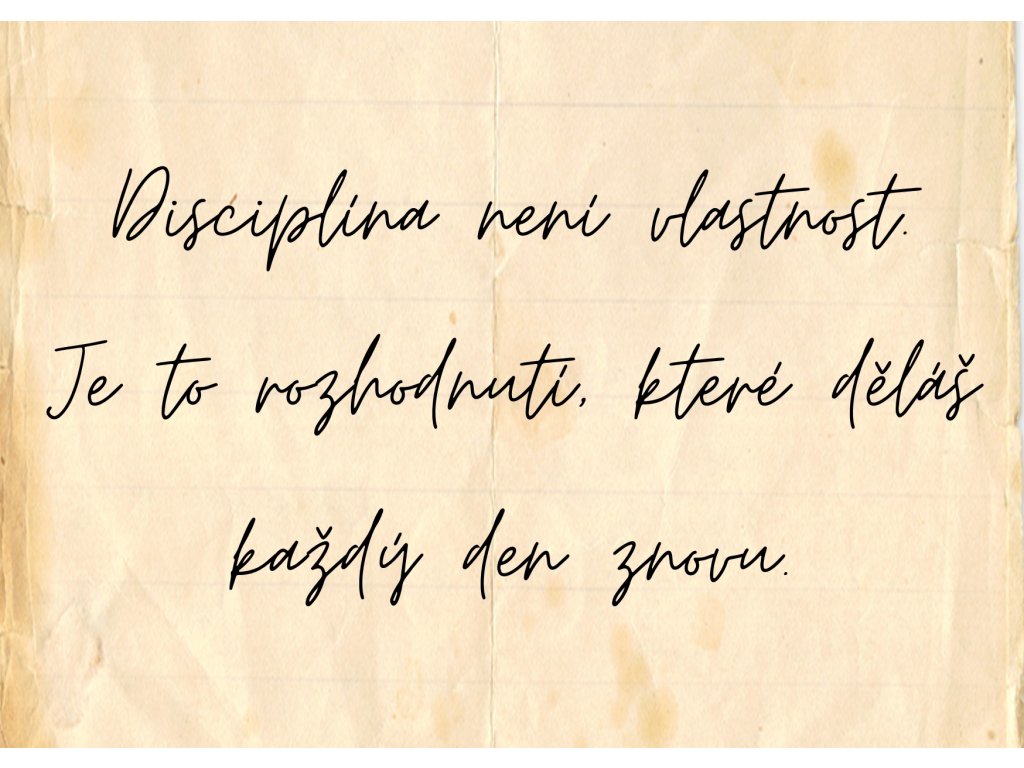 Disciplína není vlastnost.
Je to rozhodnutí, které děláš
každý den znovu.